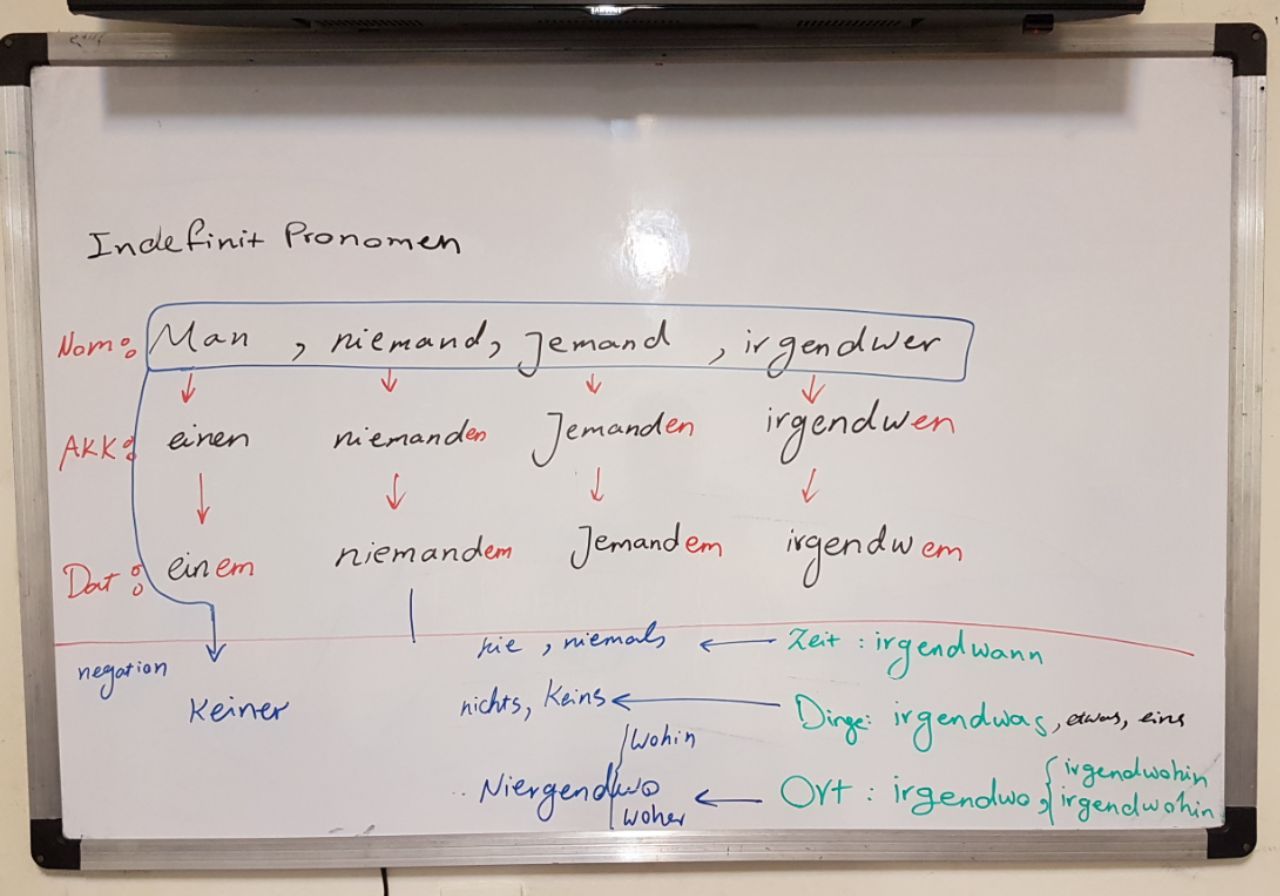 Indefinit Pronomen
Nom: Man , niemand, Jemand , irgendwer
AKK: einen niemanden Jemanden irgendwen
Dat: einem niemandem Jemandem irgendwem
negation
Keiner
nie , niemals ← Zeit : irgendwann
nichts, Keins ← Dinge: irgendwas, etwas, eins
wohin
Niergendwo ← Ort : irgendwo, irgendwohin
woher irgendwohin